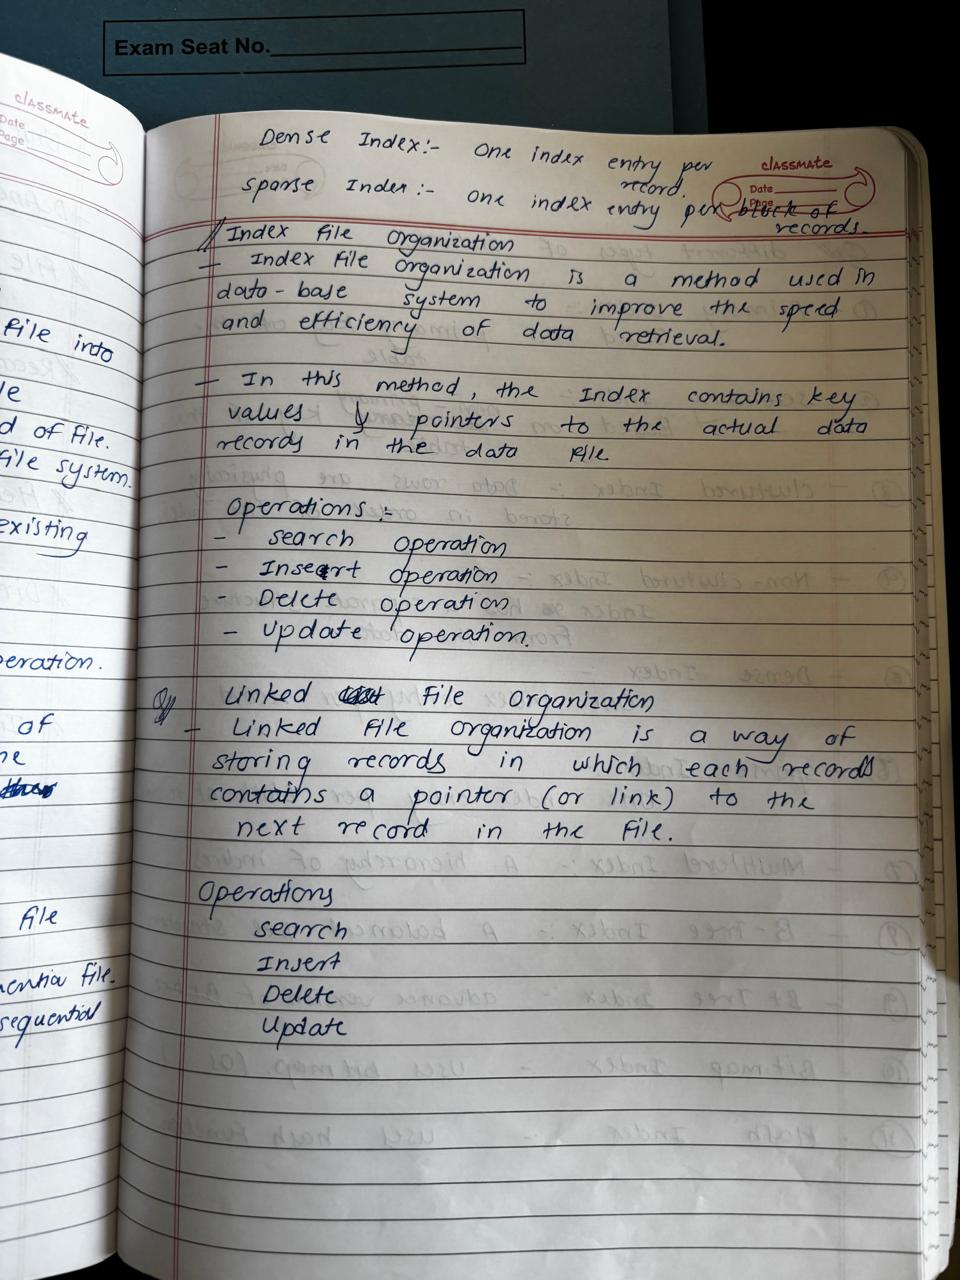 Exam Seat No.
classmate
Date
Page
file into
le
d of file.
file system.
existing
eration.
of
ne
file
uential file.
sequential
Dense Index:- one index entry per record.
classmate
Date
Page
sparse Index:- one index entry per block of records.
Index file Organization
- Index File Organization is a method used in
data-base system to improve the speed
and efficiency of data retrieval.
- In this method, the Index contains key
values & pointers to the actual data
records in the data file
Operations:-
- search operation
- Insert operation
- Delete operation
- Update operation.
Linked File Organization
- Linked File Organization is a way of
storing records in which each records
contains a pointer (or link) to the
next record in the file.
Operations
search
Insert
Delete
Update